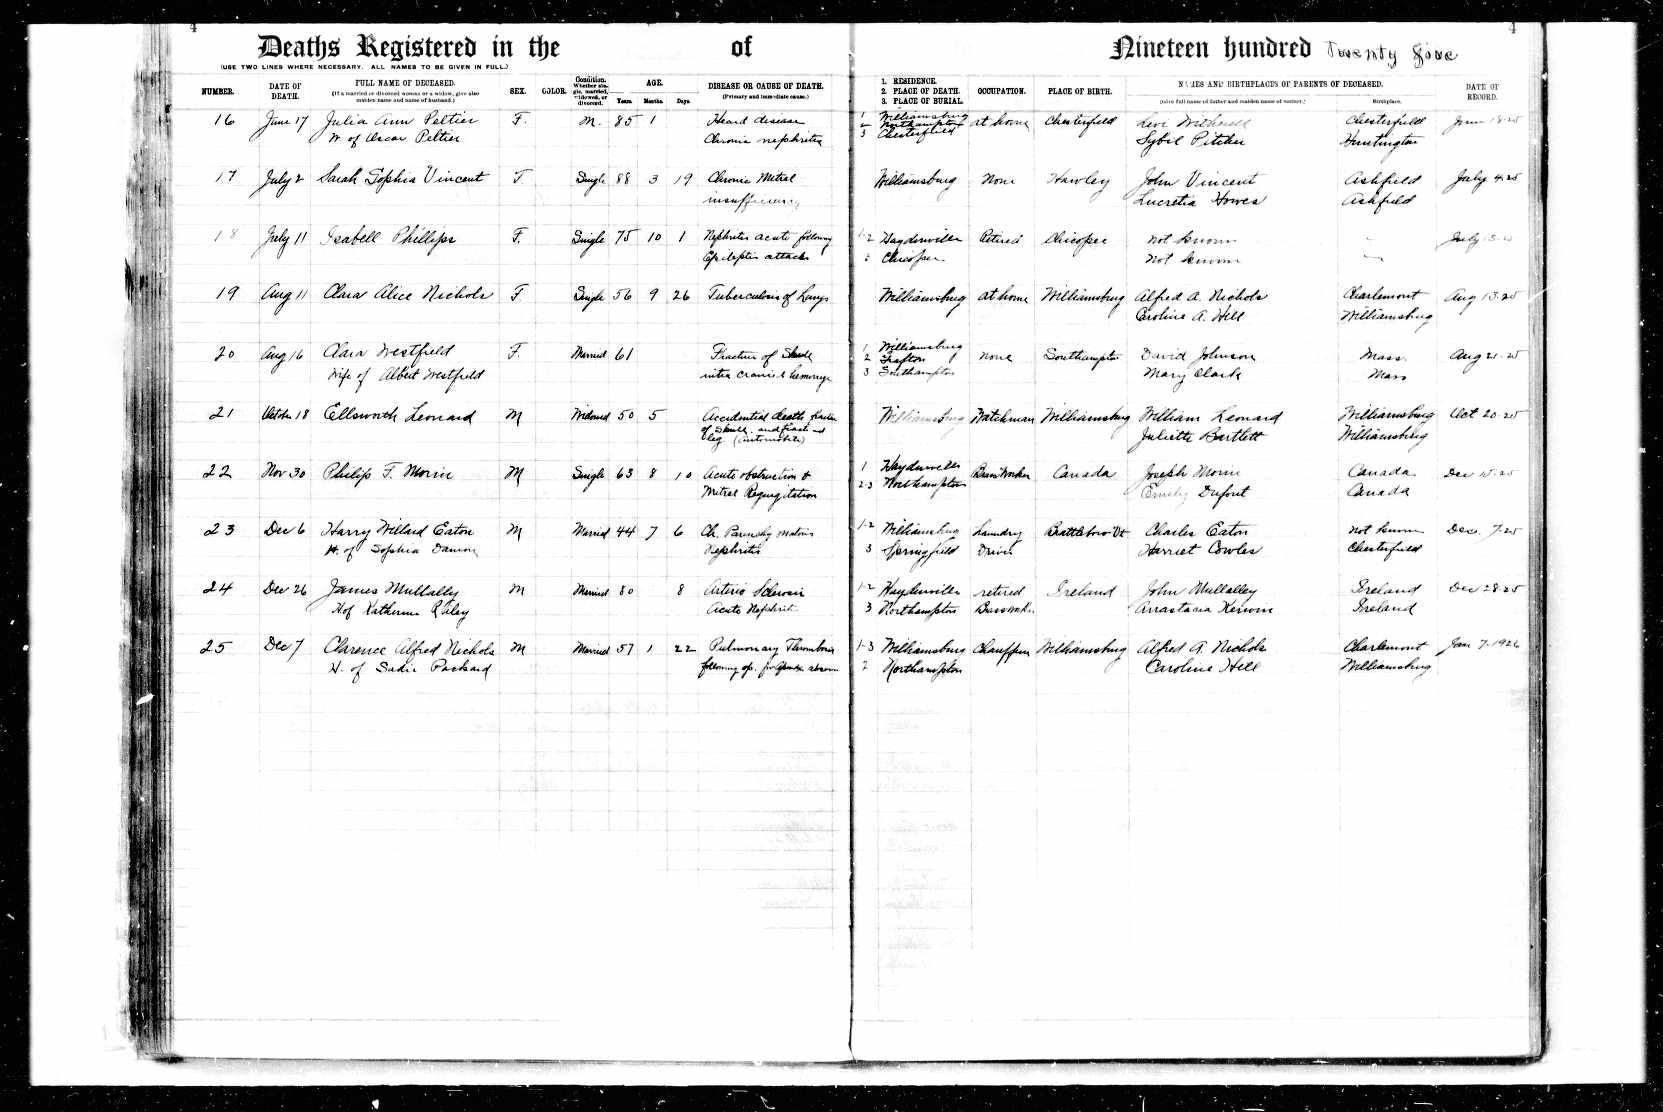 4 4
Deaths Registered in the of Nineteen hundred Twenty five
(USE TWO LINES WHERE NECESSARY. ALL NAMES TO BE GIVEN IN FULL.)
NUMBER. DATE OF DEATH. FULL NAME OF DECEASED. (If a married or divorced woman or a widow, give also maiden name and name of husband.) SEX. COLOR. Condition. Whether single, married, widowed, or divorced. AGE. Years Months Days. DISEASE OR CAUSE OF DEATH. (Primary and immediate cause.) 1. RESIDENCE. 2. PLACE OF DEATH. 3. PLACE OF BURIAL. OCCUPATION. PLACE OF BIRTH. NAMES AND BIRTHPLACES OF PARENTS OF DECEASED. (Give full name of father and maiden name of mother.) Birthplace. DATE OF RECORD.
16 June 17 Julia Ann Peltier F. M. 85 1 Heard disease 1 Williamsburg 2 Northampton at home Chesterfield Levi Chesterfield June 18-25
W. of Oscar Peltier Chronic nephritis 3 Chesterfield Sybil Pitcher Huntington
17 July 2 Sarah Sophia Vincent F Single 88 3 19 Chronic Mitral Williamsburg None Hawley John Vincent Ashfield July 4-25
insufficiency Lucretia Howes Ashfield
18 July 11 Isabell Phillips F. Single 75 10 1 Nephritis acute following 1-2 Haydenville Retired Chicopee not known " July
Epileptic attacks 3 Chicopee not known "
19 Aug 11 Clara Alice Nichols F Single 56 9 26 Tuberculosis of Lungs Williamsburg at home Williamsburg Alfred A. Nichols Charlemont Aug 13-25
Caroline A. Hill Williamsburg
20 Aug 16 Clara Westfield F. Married 61 Fracture of Skull 1 Williamsburg 2 Grafton none Southampton David Johnson Mass. Aug 21-25
Wife of Albert Westfield intra cranial hemorrage 3 Southampton Mary Clark Mass
21 October 18 Ellsworth Leonard M Widowed 50 5 Accidential death Williamsburg Watchman Williamsburg William Leonard Williamsburg Oct 20-25
of Skull. and leg (automobile) Juliette Bartlett Williamsburg
22 Nov 30 Philip F. Morin M Single 63 8 10 Acute obstruction & 1 Haydenville Brass Worker Canada Joseph Morin Canada Dec 10-25
Mitral Regurgitation 2-3 Northampton Emily Dufont Canada
23 Dec 6 Harry Willard Eaton M Married 44 7 6 Ch. Parenchymatous 1-2 Williamsburg Laundry Brattleboro Vt Charles Eaton not known Dec. 7-25
H. of Sophia Damon Nephritis 3 Springfield Driver Harriet Cowles Chesterfield
24 Dec 26 James Mullally M Married 80 8 Arterio Sclerosis 1-2 Haydenville retired Ireland John Mullalley Ireland Dec 28-25
H of Katherine Riley Acute Nephrit. 3 Northampton Anastacia Kerwin Ireland
25 Dec 7 Clarence Alfred Nichols M Married 57 1 22 Pulmonary Thrombosis 1-3 Williamsburg Chauffeur Williamsburg Alfred A. Nichols Charlemont Jan 7-1926
H. of Sadie Packard following op. for 2 Northampton Caroline Hill Williamsburg